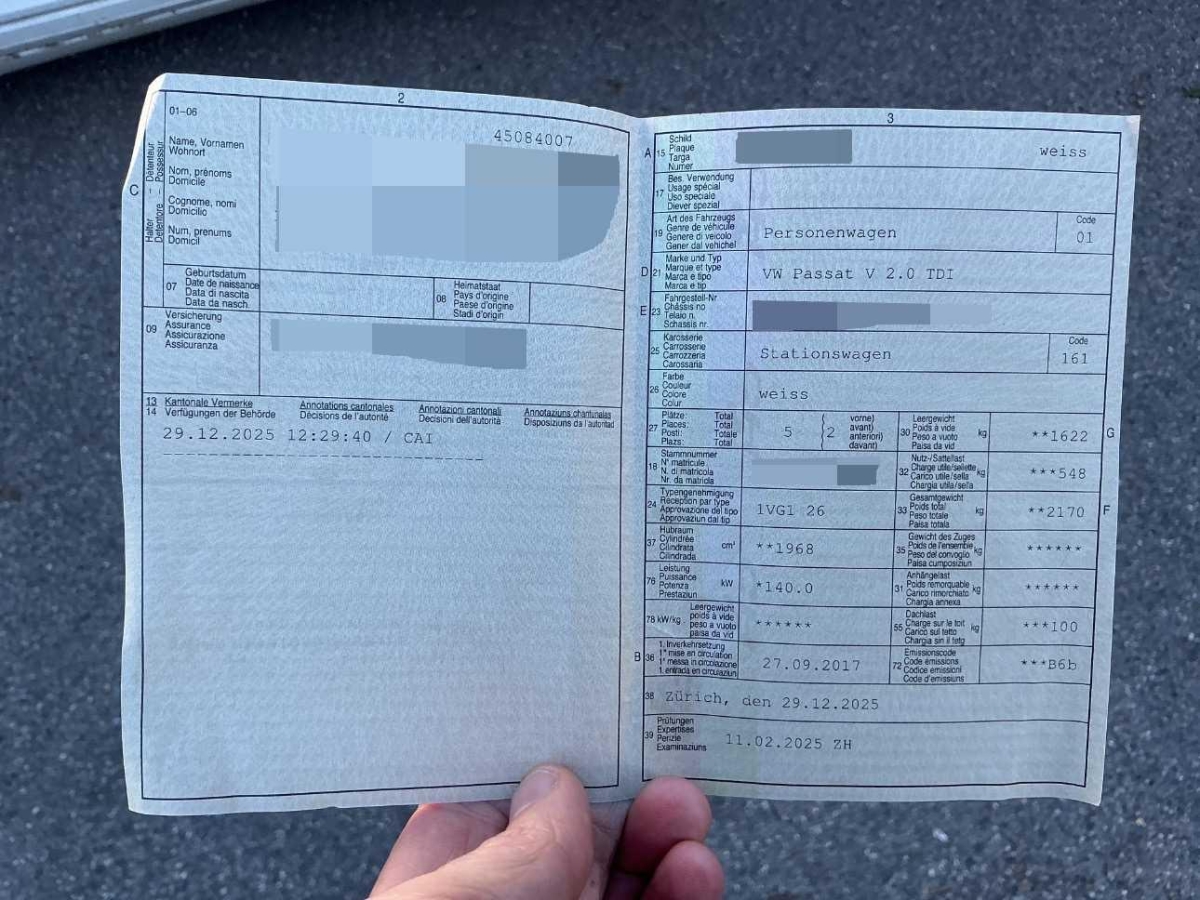 2
01-06
45084007
Name, Vornamen
Wohnort
Nom, prénoms
Domicile
Cognome, nomi
Domicilio
Num, prenums
Domicil
C
Halter – Détenteur
Detentore Possessur
07
Geburtsdatum
Date de naissance
Data di nascita
Data da nasch.
08
Heimatstaat
Pays d'origine
Paese d'origine
Stadi d'origin
09
Versicherung
Assurance
Assicurazione
Assicuranza
13 Kantonale Vermerke Annotations cantonales Annotazioni cantonali Annotaziuns chantunalas
14 Verfügungen der Behörde Décisions de l'autorité Decisioni dell'autorità Disposiziuns da l'autoritad
29.12.2025 12:29:40 / CAI
3
A 15
Schild
Plaque
Targa
Numer
weiss
17
Bes. Verwendung
Usage spécial
Uso speciale
Diever spezial
19
Art des Fahrzeugs
Genre de véhicule
Genere di veicolo
Gener dal vehichel
Personenwagen
Code
01
D 21
Marke und Typ
Marque et type
Marca e tipo
Marca e tip
VW Passat V 2.0 TDI
E 23
Fahrgestell-Nr
Châssis no
Telaio n.
Schassis nr.
25
Karosserie
Carrosserie
Carrozzeria
Carossaria
Stationswagen
Code
161
26
Farbe
Couleur
Colore
Colur
weiss
27
Plätze: Total
Places: Total
Posti: Totale
Plazs: Total
5
2
vorne)
avant)
anteriori)
davant)
30
Leergewicht
Poids à vide
Peso a vuoto
Paisa da vid
kg
**1622
G
18
Stammnummer
N° matricule
N. di matricola
Nr. da matricla
32
Nutz-/Sattellast
Charge utile/sellette
Carico utile/sella
Chargia utila/sella
kg
***548
24
Typengenehmigung
Réception par type
Approvazione del tipo
Approvaziun dal tip
1VG1 26
33
Gesamtgewicht
Poids total
Peso totale
Paisa totala
kg
**2170
F
37
Hubraum
Cylindrée
Cilindrata
Cilindrada
cm³
**1968
35
Gewicht des Zuges
Poids de l'ensemble
Peso del convoglio
Paisa cumposiziun
kg
******
76
Leistung
Puissance
Potenza
Prestaziun
kW
*140.0
31
Anhängelast
Poids remorquable
Carico rimorchiato
Chargia annexa
kg
******
78 kW/kg
Leergewicht
poids à vide
peso a vuoto
paisa da vid
******
55
Dachlast
Charge sur le toit
Carico sul tetto
Chargia sin il tetg
kg
***100
B 36
1. Inverkehrsetzung
1re mise en circulation
1a messa in circolazione
1. entrada en circulaziun
27.09.2017
72
Emissionscode
Code émissions
Codice emissioni
Code d'emissiuns
***B6b
38
Zürich, den 29.12.2025
39
Prüfungen
Expertises
Perizie
Examinaziuns
11.02.2025 ZH